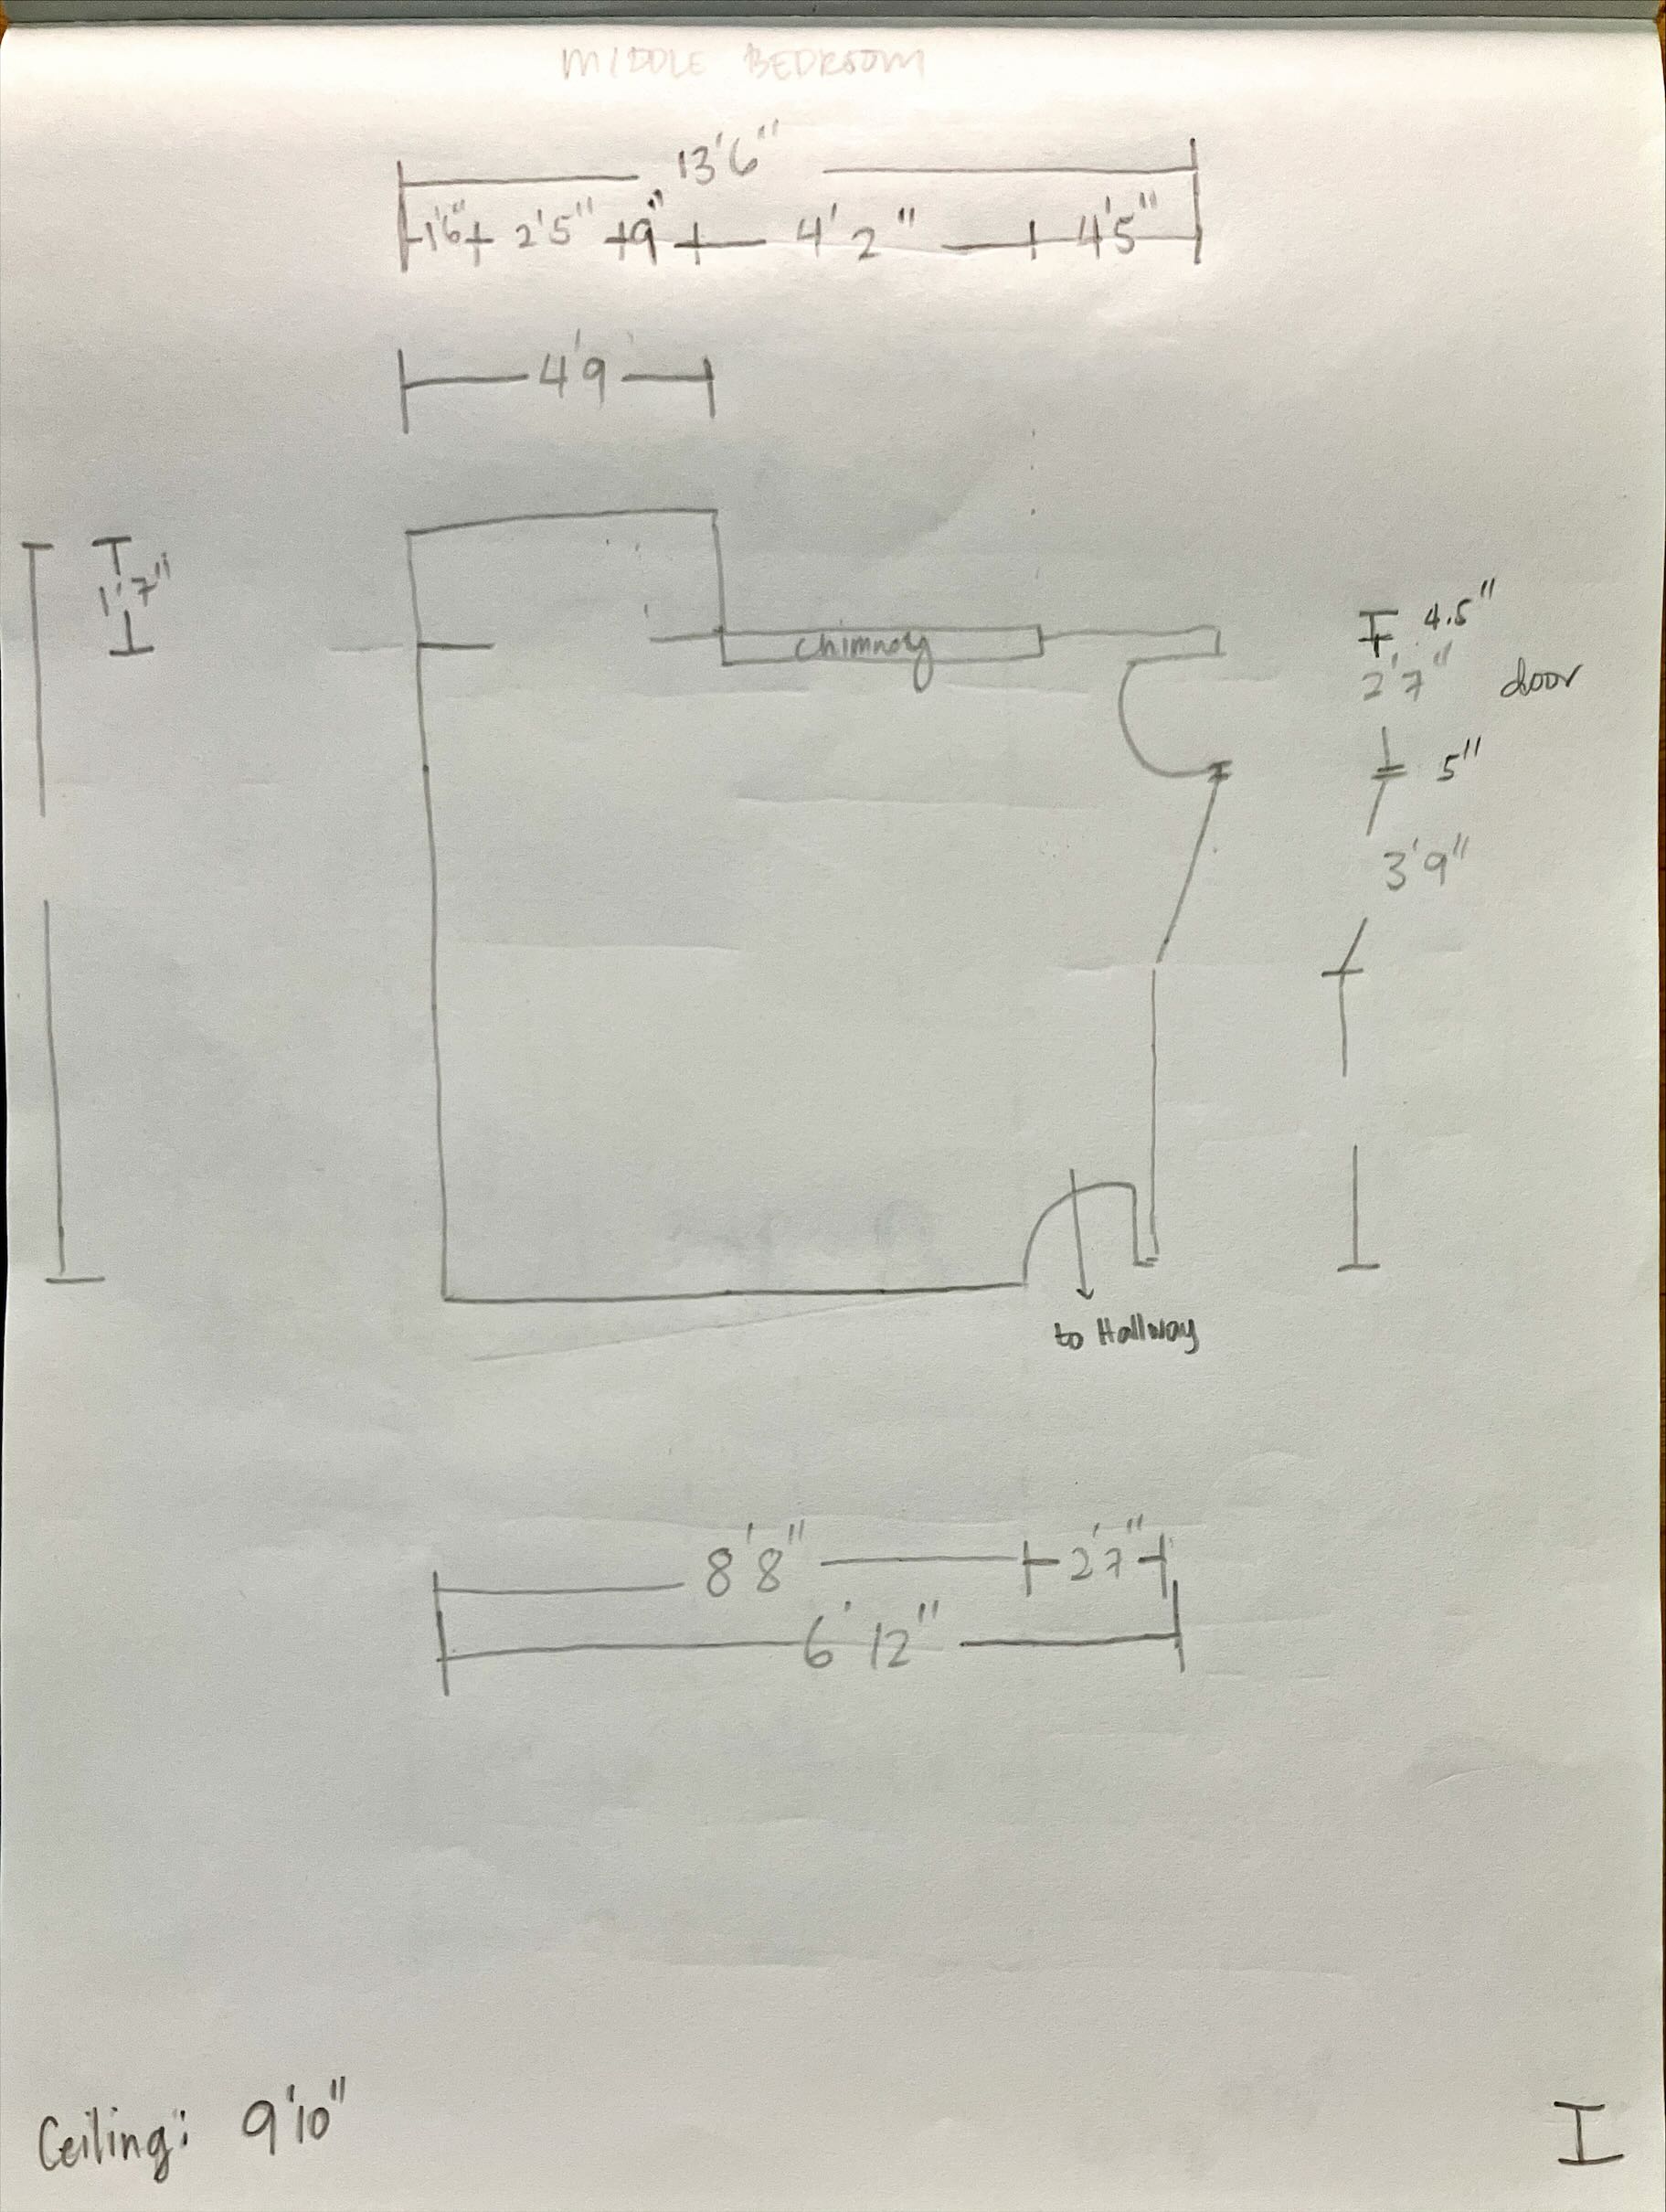 MIDDLE BEDROOM
13'6"
1'6" 2'5" 9" 4'2" 4'5"
4'9
1'7"
chimney
4.5"
2'7" door
5"
3'9"
to Hallway
8'8" 2'7"
6'12"
Ceiling: 9'10"